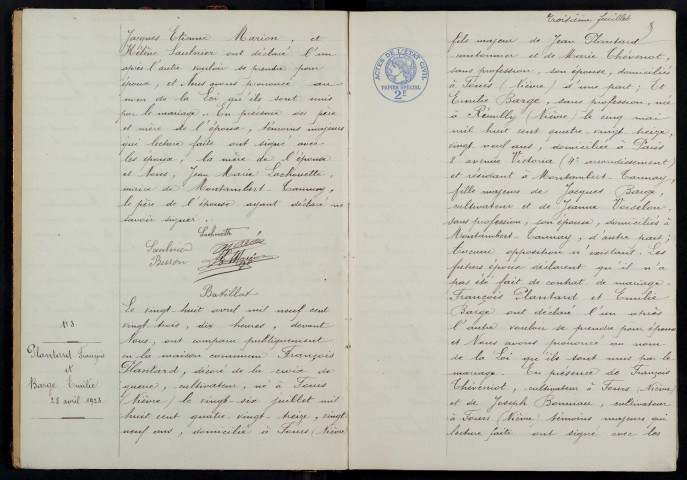 Jacques Etienne Marion, et
Hélène Saulnier ont déclaré l'un
après l'autre vouloir se prendre pour
époux, et Nous avons prononcé au
nom de la Loi qu'ils sont unis
par le mariage. En présence des père
et mère de l'épouse, témoins majeurs
qui lecture faite ont signé avec
les époux, la mère de l'épouse
et Nous, Jean Marie Lachouette,
maire de Montambert-Tannay,
le père de l'épouse ayant déclaré ne
savoir signer.
Saulnier
Batillat
N°3
Plantard François
et
Barge Emilie
28 avril 1923
Le vingt huit avril mil neuf cent
vingt trois, dix heures, devant
Nous, ont comparu publiquement
en la maison commune François
Plantard, décoré de la croix de
guerre, cultivateur, né à Fours
(Nièvre) le vingt six juillet mil
huit cent quatre vingt treize, vingt
neuf ans, domicilié à Fours (Nièvre
Troisième feuillet
3
ACTES DE L'ETAT CIVIL
PAPIER SPÉCIAL
2F
fils majeur de Jean Plantard
cantonnier et de Marie Thévenot,
sans profession, son épouse, domiciliés
à Fours (Nièvre) d'une part; Et
Emilie Barge, sans profession, née
à Rémilly (Nièvre) le cinq mai
mil huit cent quatre vingt treize,
vingt neuf ans, domiciliée à Paris
8 avenue Victoria (4e arrondissement)
et résidant à Montambert-Tannay,
fille majeure de Jacques Barge,
cultivateur et de Jeanne Voiselon,
sans profession, son épouse, domiciliés à
Montambert-Tannay, d'autre part;
Aucune opposition n'existant. Les
futurs époux déclarent qu'il n'a
pas été fait de contrat de mariage.
François Plantard et Emilie
Barge ont déclaré l'un après
l'autre vouloir se prendre pour époux
et Nous avons prononcé au nom
de la Loi qu'ils sont unis par le
mariage. En présence de François
Thévenot, cultivateur à Fours (Nièvre)
et de Joseph Bonneau, cultivateur
à Fours (Nièvre) témoins majeurs qui
lecture faite ont signé avec les